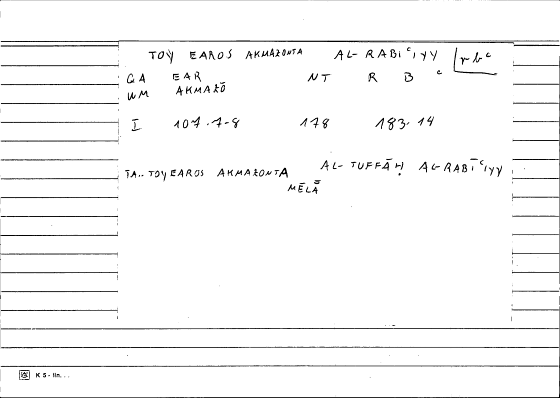 TOY EAROS AKMAZONTA AL-RABIᶜIYY rbᶜ
GA EAR NT R B ᶜ
WM AKMAZŌ
I 107.7-8 178 183.14
TA.. TOY EAROS AKMAZONTA AL-TUFFĀḤ AL-RABĪᶜIYY
MĒLA
K 5 - lin. . .